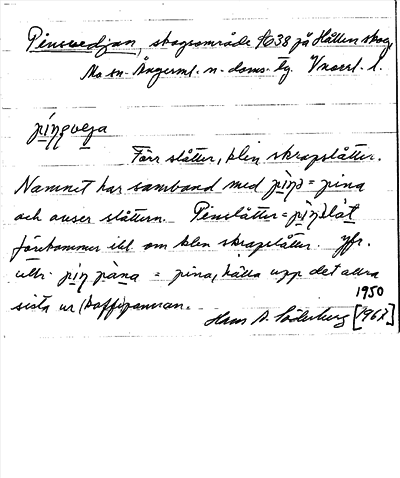 Pinsvedjan, skogsområde № 38 på Hållen skog,
Mo sn. Ångerml. n. doms. lg. Vnorrl. l.
pìŋsveja
Förr slåtter, klen skrapslåtter.
Namnet har samband med pìŋə = pina
och avser slåttern. Pinslåtter = pìŋslåt
förekommer ibl. om klen skrapslåtter. Jfr.
uttr. piŋ pàna = pina, hälla upp det allra
sista ur (kaffe)pannan.
1950
Hans A. Söderberg [1967]